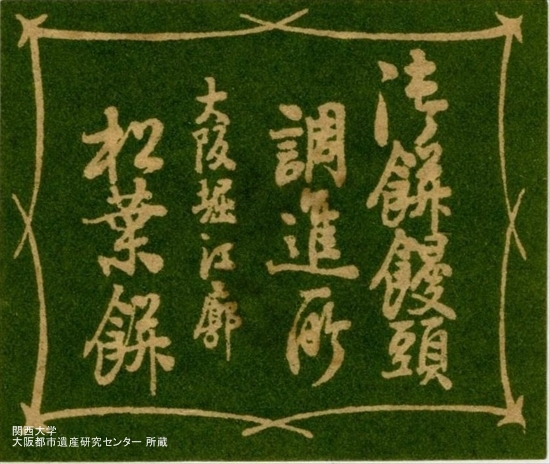 御餅饅頭
調進所
大阪堀江廓
松葉餅
関西大学
大阪都市遺産研究センター 所蔵